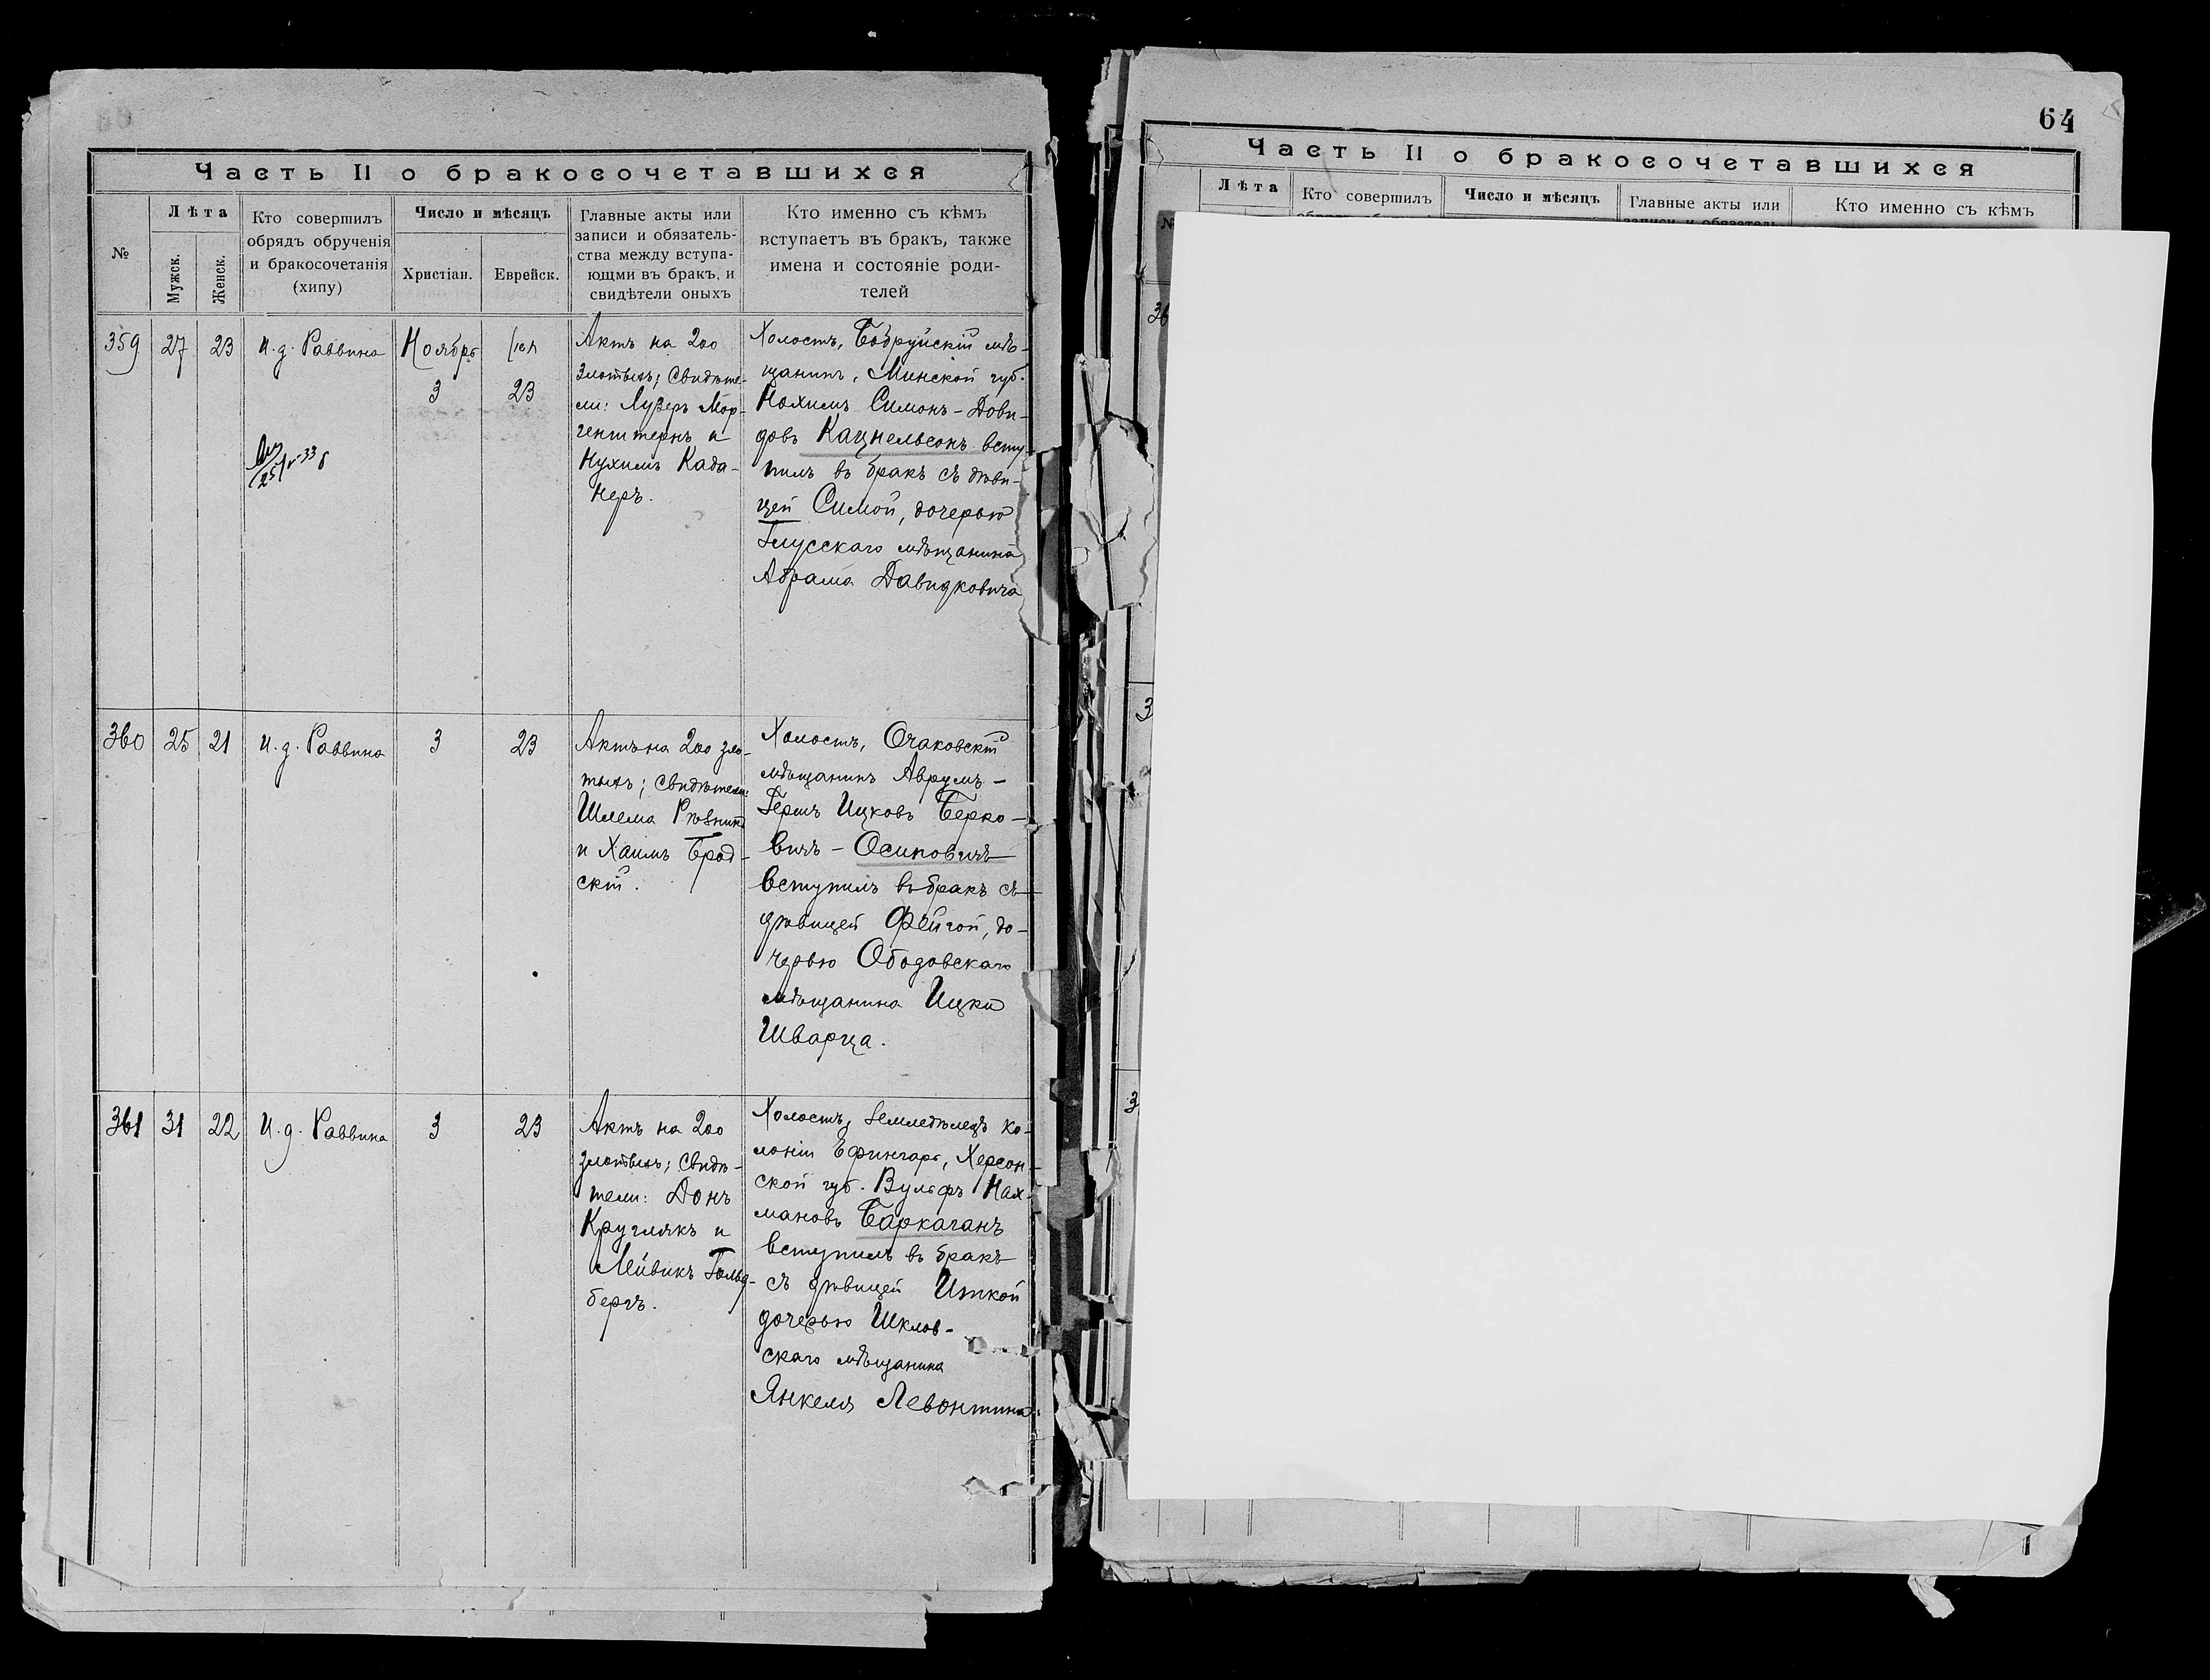 Часть II о бракосочетавшихся
№
Лѣта
Мужск.
Женск.
Кто совершилъ
обрядъ обрученія
и бракосочетанія
(хипу)
Число и мѣсяцъ
Христіан.
Еврейск.
Главные акты или
записи и обязатель-
ства между вступа-
ющми въ бракъ, и
свидѣтели оныхъ
Кто именно съ кѣмъ
вступаетъ въ бракъ, также
имена и состояніе роди-
телей
359
27
23
И. д. Раввина
Ноябрь
3
23
Актъ на 200
злотыхъ; Свидѣте-
ли: Лузеръ Мор-
генштернъ и
Нухимъ Када-
неръ.
Холостъ, Бобруйскій мѣ-
щанинъ, Минской губ.
Нохимъ Симонъ-Дови-
довъ Кацнельсонъ всту
пилъ въ бракъ съ дѣви-
цей Симой, дочерью
Глусскаго мѣщанина
Абрама Давидковича
360
25
21
И. д. Раввина
3
23
Актъ на 200 зло-
тыхъ; Свидѣтели:
Шлема Рѣзникъ
и Хаимъ Брод-
скій.
Холостъ, Очаковскій
мѣщанинъ Аврумъ-
Гершъ Ицковъ Берко-
вичъ-Осиповичъ
вступилъ въ бракъ съ
дѣвицей Фейгой, до-
черью Ободовскаго
мѣщанина Ицки
Шварца.
361
31
22
И. д. Раввина
3
23
Актъ на 200
злотыхъ; Свидѣ-
тели: Донъ
Круглякъ и
Лейвикъ Гольд-
бергъ.
Холостъ, Земледѣлецъ ко-
лоніи Ефингаръ, Херсон-
ской губ. Вульфъ Нах-
мановъ Баркаганъ
вступилъ въ бракъ
съ дѣвицей Иткой
дочерью Шклов-
скаго мѣщанина
Янкеля Левонтина.
64
Часть II о бракосочетавшихся
Лѣта
Кто совершилъ
Число и мѣсяцъ
Главные акты или
записи и обязатель-
Кто именно съ кѣмъ